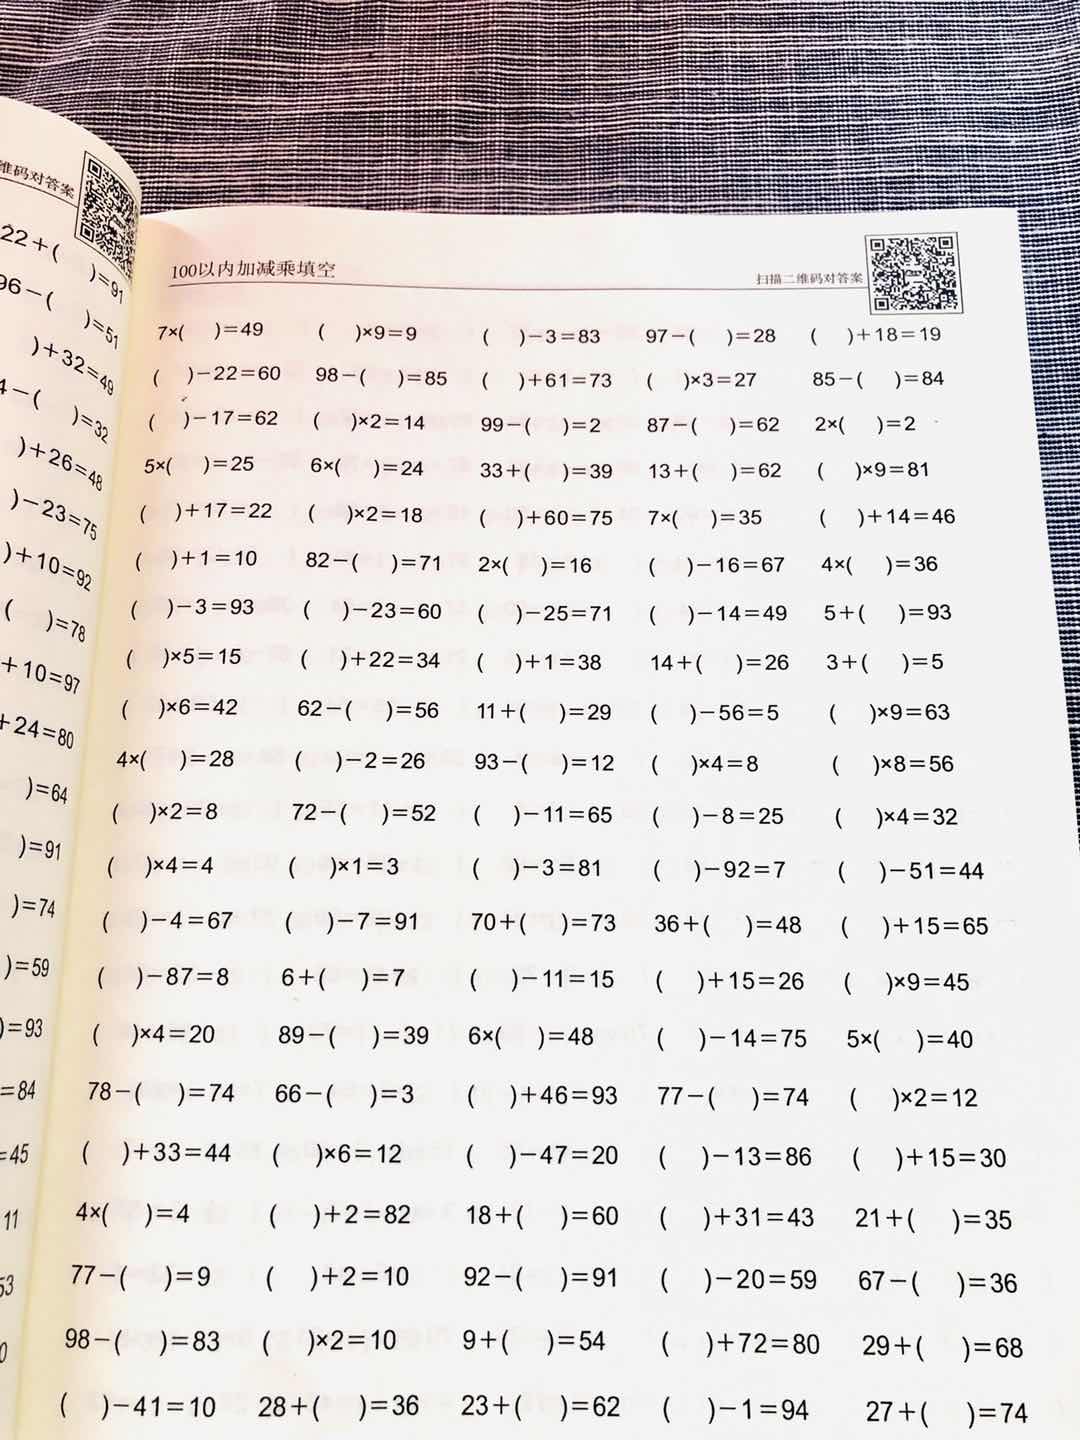 维码对答案
22+(    )=91
96-(    )=51
)+32=49
4-(    )=32
)+26=48
)-23=75
)+10=92
(    )=78
+10=97
+24=80
)=64
)=91
)=74
)=59
)=93
=84
=45
11
53
0
100以内加减乘填空 扫描二维码对答案
7×(    )=49 (    )×9=9 (    )-3=83 97-(    )=28 (    )+18=19
(    )-22=60 98-(    )=85 (    )+61=73 (    )×3=27 85-(    )=84
(    )-17=62 (    )×2=14 99-(    )=2 87-(    )=62 2×(    )=2
5×(    )=25 6×(    )=24 33+(    )=39 13+(    )=62 (    )×9=81
(    )+17=22 (    )×2=18 (    )+60=75 7×(    )=35 (    )+14=46
(    )+1=10 82-(    )=71 2×(    )=16 (    )-16=67 4×(    )=36
(    )-3=93 (    )-23=60 (    )-25=71 (    )-14=49 5+(    )=93
(    )×5=15 (    )+22=34 (    )+1=38 14+(    )=26 3+(    )=5
(    )×6=42 62-(    )=56 11+(    )=29 (    )-56=5 (    )×9=63
4×(    )=28 (    )-2=26 93-(    )=12 (    )×4=8 (    )×8=56
(    )×2=8 72-(    )=52 (    )-11=65 (    )-8=25 (    )×4=32
(    )×4=4 (    )×1=3 (    )-3=81 (    )-92=7 (    )-51=44
(    )-4=67 (    )-7=91 70+(    )=73 36+(    )=48 (    )+15=65
(    )-87=8 6+(    )=7 (    )-11=15 (    )+15=26 (    )×9=45
(    )×4=20 89-(    )=39 6×(    )=48 (    )-14=75 5×(    )=40
78-(    )=74 66-(    )=3 (    )+46=93 77-(    )=74 (    )×2=12
(    )+33=44 (    )×6=12 (    )-47=20 (    )-13=86 (    )+15=30
4×(    )=4 (    )+2=82 18+(    )=60 (    )+31=43 21+(    )=35
77-(    )=9 (    )+2=10 92-(    )=91 (    )-20=59 67-(    )=36
98-(    )=83 (    )×2=10 9+(    )=54 (    )+72=80 29+(    )=68
(    )-41=10 28+(    )=36 23+(    )=62 (    )-1=94 27+(    )=74